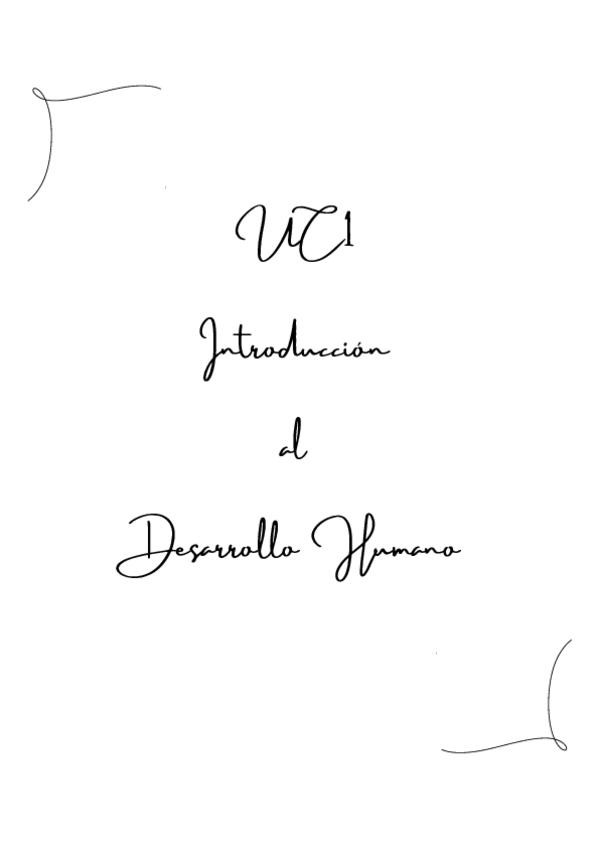 UC1
Introducción
al
Desarrollo Humano